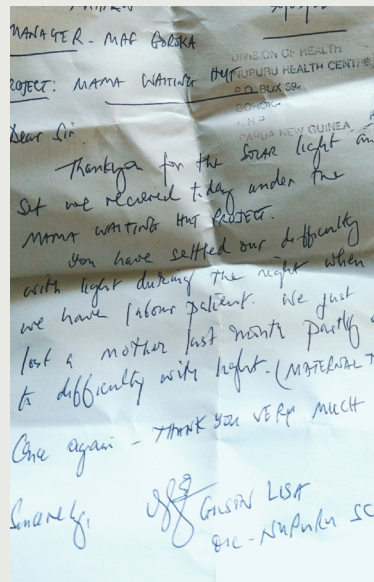 MANAGER - MAF GOROKA
DIVISION OF HEALTH
NUPURU HEALTH CENTRE
PROJECT: MAMA WAITING HUT
GOROKA
PAPUA NEW GUINEA
Dear Sir.
Thankyou for the SOLAR light
Set we received today under the
MAMA WAITING HUT PROJECT.
You have settled our difficulty
with light during the night when
we have labour patient. We just
lost a mother last month partly
to difficulty with light. (MATERNAL
Once again - THANK YOU VERY MUCH
Sincerely,
LISA
OIC - NUPURU SC